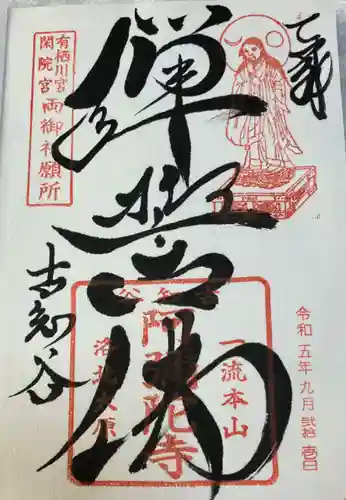 彈誓佛
有栖川宮
閑院宮
両御祈願所
古知谷
古知谷
一流本山
阿弥陀寺
洛北大原
令和五年九月弐拾壱日